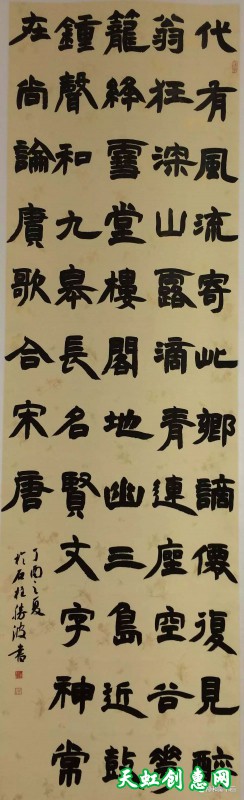 代有風流寄此鄉謫僊復見醉
翁狂深山露滴青蓮座空谷
籠絳雪堂樓閣地幽三島近鼓
鍾聲和九皋長名賢文字神常
在尚論賡歌合宋唐
丁酉之夏
於石柱勝波書
天虹创惠网